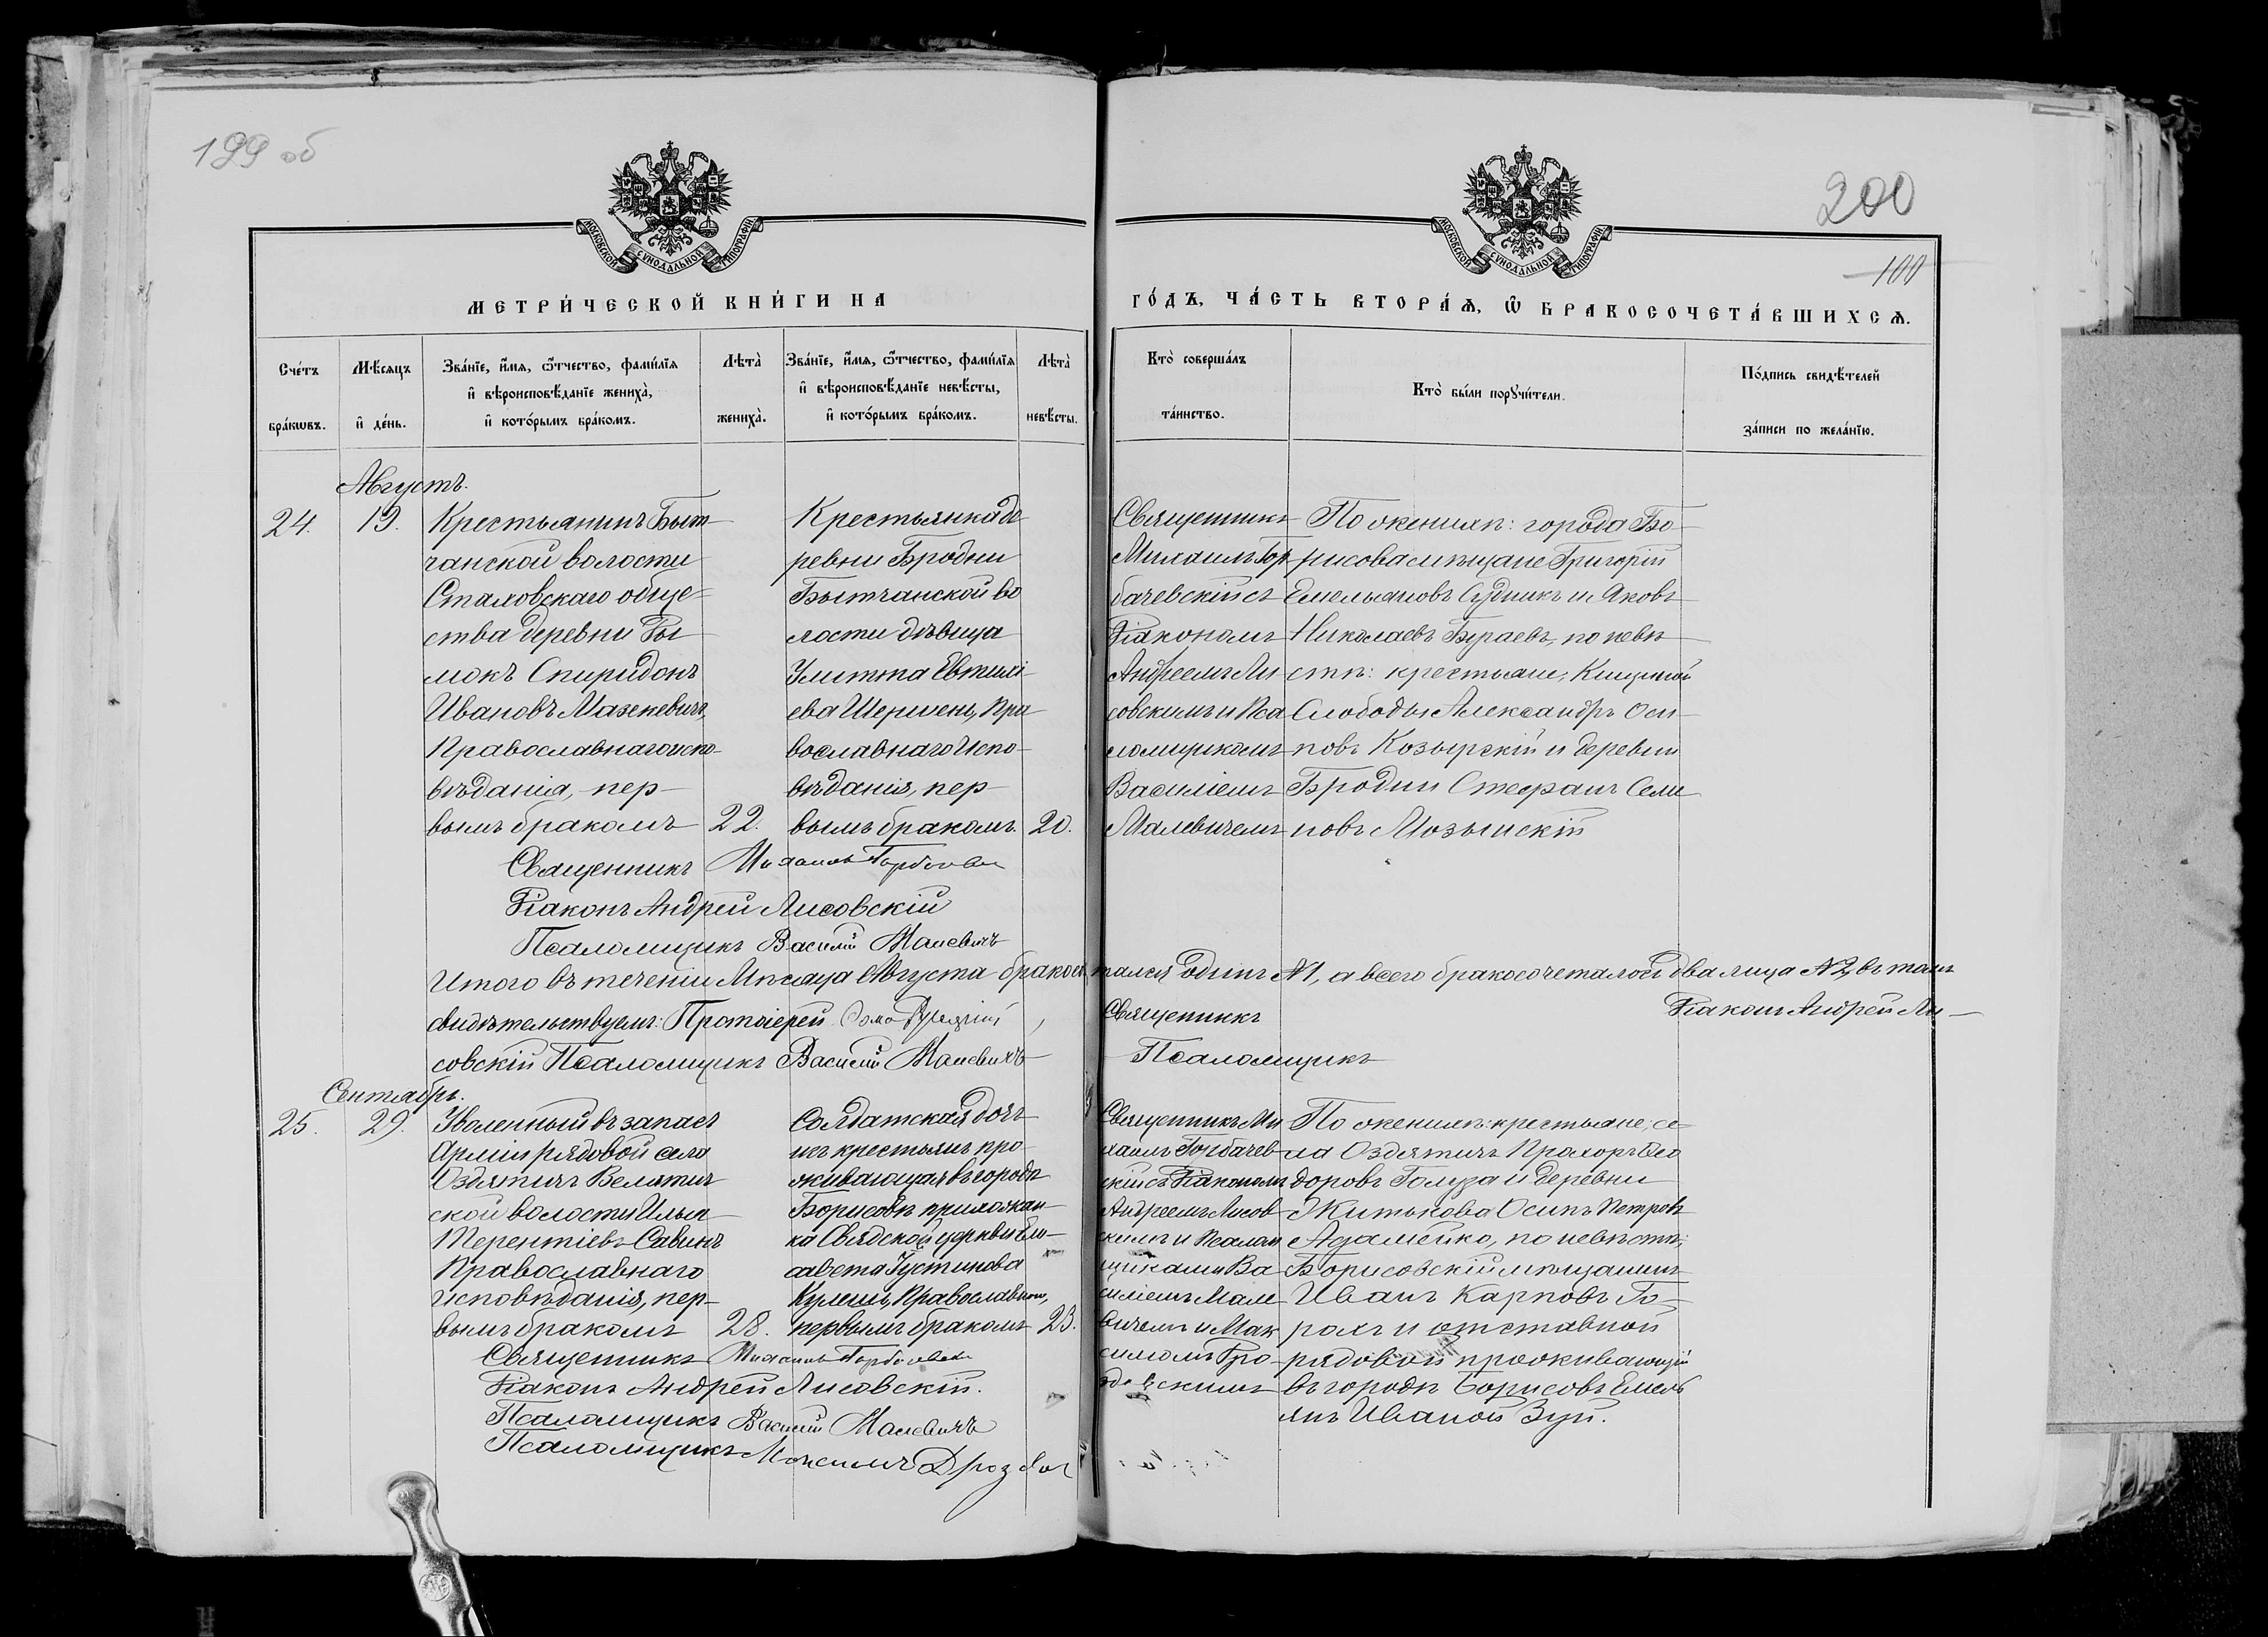 199 об
200
100
МОСКОВСКОЙ СѴНОДАЛЬНОЙ ТИПОГРАФІИ
МОСКОВСКОЙ СѴНОДАЛЬНОЙ ТИПОГРАФІИ
МЕТРИ́ЧЕСКОЙ КНИ́ГИ НА
ГО́ДЪ, ЧА́СТЬ ВТОРА́Ѧ, Ѿ БРАКОСОЧЕТА́ВШИХСѦ.
Сче́тъ
бра́кѡвъ.
Мѣ́сѧцъ
и҆ де́нь.
Зва́нїе, и҆́мѧ, ѻ҆́тчество, фами́лїѧ
и҆ вѣроисповѣ́данїе жениха̀,
и҆ кото́рымъ бра́комъ.
Лѣта̀
жениха̀.
Зва́нїе, и҆́мѧ, ѻ҆́тчество, фами́лїѧ
и҆ вѣроисповѣ́данїе невѣ́сты,
и҆ кото́рымъ бра́комъ.
Лѣта̀
невѣ́сты.
Кто̀ соверша́лъ
та́инство.
Кто̀ бы́ли порꙋчи́тели.
По́дпись свидѣ́телей
за́писи по жела́нїю.
Августъ.
24.
19.
Крестьянинъ Быт-
чанской волости
Стаховскаго обще-
ства деревни Ры
мокъ Спиридонъ
Ивановъ Мазкевичъ,
Православнаго испо-
вѣданія, пер-
вымъ бракомъ
22.
Крестьянка де
ревни Бродни
Бытчанской во
лости дѣвица
Улитта Евтихі-
ева Шершень, Пра
вославнаго Испо-
вѣданія, пер-
вымъ бракомъ.
20.
Священникъ
Михаилъ Гор
бачевскій съ
Діакономъ
Андреемъ Ли
совскимъ и Пса
ломщикомъ
Василіемъ
Малевичемъ
По женихѣ: города Бо-
рисова мѣщане Григорій
Емельяновъ Судникъ и Яковъ
Николаевъ Бураевъ, по невѣ
стѣ: крестьяне,
Слободы Александръ Оси-
повъ Козырскій и деревни
Бродни Стефанъ Семе
новъ
Священникъ Михаилъ Горбачевск
Діаконъ Андрей Лисовскій
Псаломщикъ Василій Малевичъ
Итого въ теченіи Мѣсяца Августа бракосо тался одинъ №1, а всего бракосочеталось два лица №2, въ томъ
свидѣтельствуемъ: Протоіерей Священникъ Діаконъ Андрей Ли-
совскій Псаломщикъ Василій Малевичъ Псаломщикъ
Сентябрь.
25.
29.
Уволенный въ запасъ
Арміи рядовой села
Оздятичъ Велятич
ской волости Илья
Терентіевъ Савинъ
Православнаго
исповѣданія, пер-
вымъ бракомъ
28.
Солдатская дочь
изъ крестьянъ про-
живающая въ городѣ
Борисовѣ прихожан-
ка Свядской церкви Ели-
савета Густинова
Кулешъ, Православнаго,
первымъ бракомъ
23.
Священникъ Ми
хаилъ Горбачев-
скій съ Діакономъ
Андреемъ Лисов-
скимъ и Псалом
щиками Ва
силіемъ Мале
вичемъ и Мак
симомъ Дро-
здовскимъ
По женихѣ: крестьяне, се-
ла Оздятичъ Прохоръ Ѳео
доровъ Голуза и деревни
Житькова Осипъ Петровъ
Адамейко, по невѣстѣ:
Борисовскій мѣщанинъ
Иванъ Карповъ Го-
рохъ и отставной
рядовой проживающій
въ городѣ Борисовѣ Емель
янъ Ивановъ Зуй.
Священникъ Михаилъ Горбачевск
Діаконъ Андрей Лисовскій.
Псаломщикъ Василій Малевичъ
Псаломщикъ Максимъ Дроздов